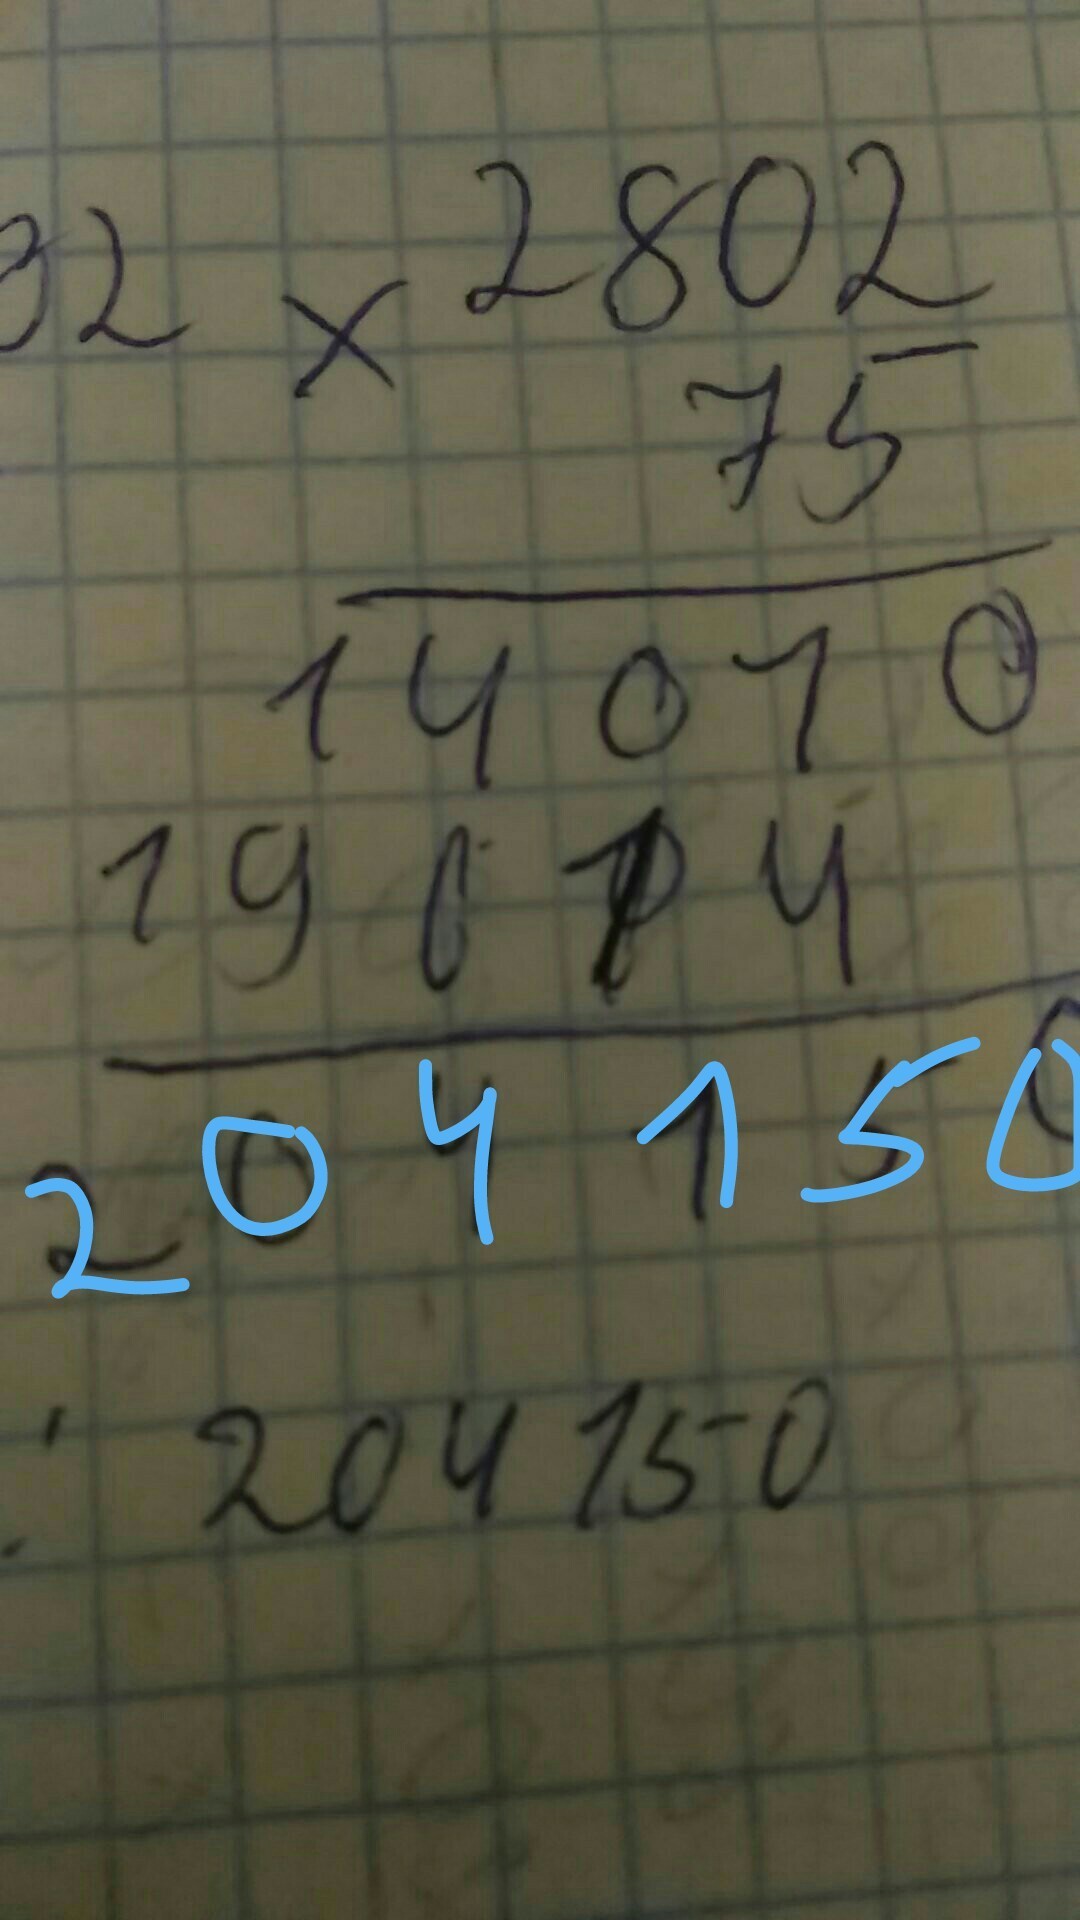 32 × 2802
75
14010
19614
204150
204150